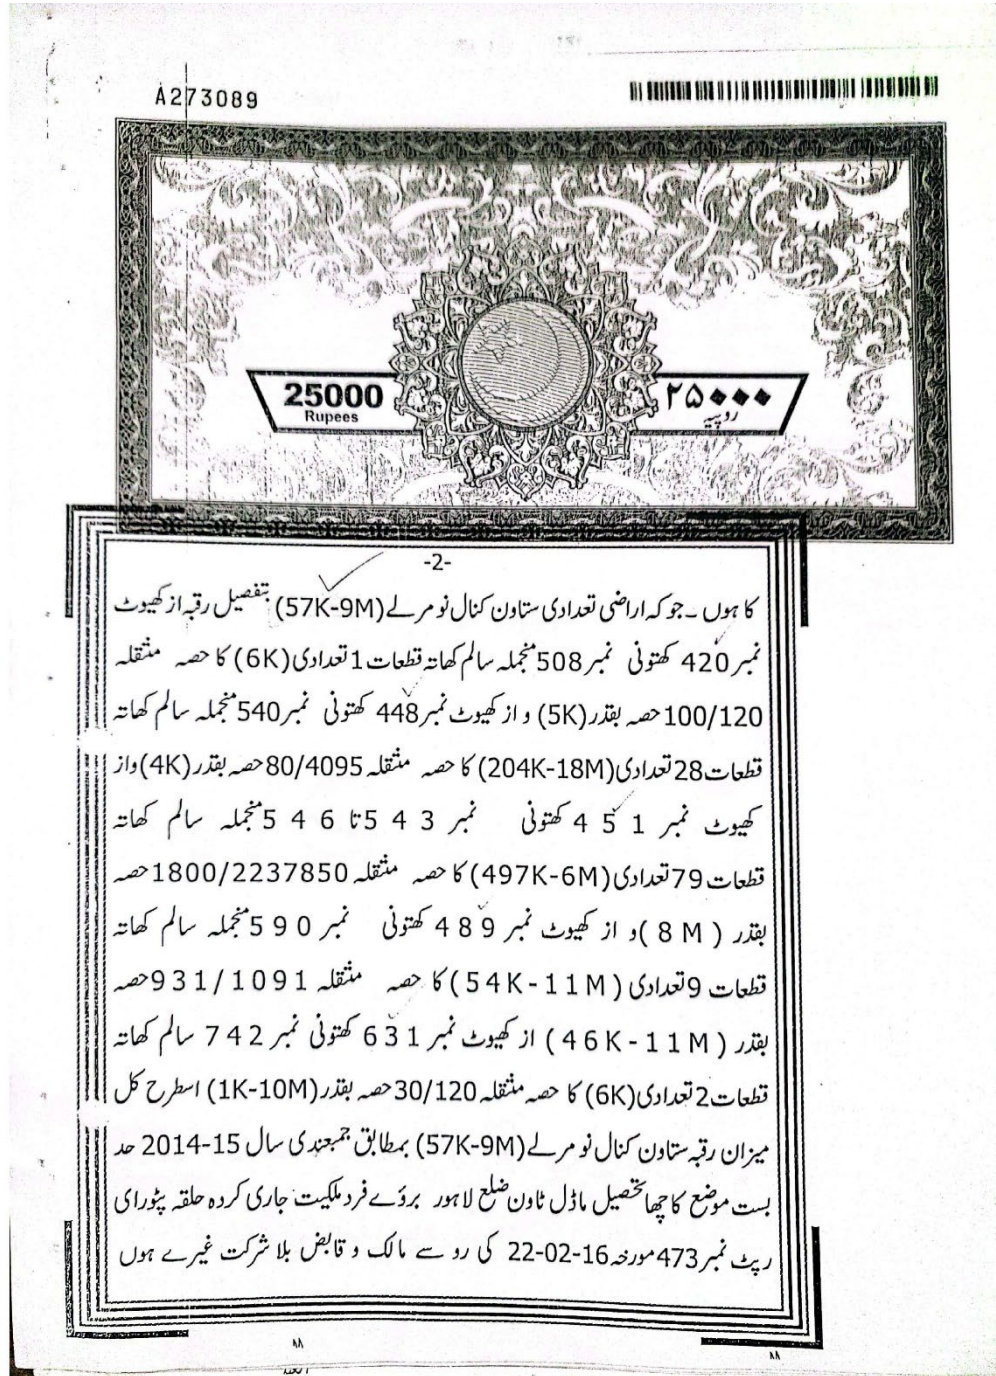 A273089
25000
Rupees
۲۵۰۰۰
روپیہ
-2-
کا ہوں ۔ جو کہ اراضی تعدادی ستاون کنال نو مرلے (57K-9M) بتفصیل رقبہ از کھیوٹ
نمبر 420 کھتونی نمبر 508 منجملہ سالم کھاتہ قطعات 1 تعدادی (6K) کا حصہ منتقلہ
100/120 حصہ بقدر (5K) و از کھیوٹ نمبر 448 کھتونی نمبر 540 منجملہ سالم کھاتہ
قطعات 28 تعدادی (204K-18M) کا حصہ منتقلہ 80/4095 حصہ بقدر (4K) واز
کھیوٹ نمبر 451 کھتونی نمبر 543 تا 546 منجملہ سالم کھاتہ
قطعات 79 تعدادی (497K-6M) کا حصہ منتقلہ 1800/2237850 حصہ
بقدر (8M) و از کھیوٹ نمبر 489 کھتونی نمبر 590 منجملہ سالم کھاتہ
قطعات 9 تعدادی (54K-11M) کا حصہ منتقلہ 931/1091 حصہ
بقدر (46K-11M) از کھیوٹ نمبر 631 کھتونی نمبر 742 سالم کھاتہ
قطعات 2 تعدادی (6K) کا حصہ منتقلہ 30/120 حصہ بقدر (1K-10M) اسطرح کل
میزان رقبہ ستاون کنال نو مرلے (57K-9M) بمطابق جمبعندی سال 15-2014 حد
بست موضع کاچھا تحصیل ماڈل ٹاون ضلع لاہور بروۓ فرد ملکیت جاری کردہ حلقہ پٹورای
رپٹ نمبر 473 مورخہ 16-02-22 کی رو سے مالک و قابض بلا شرکت غیرے ہوں